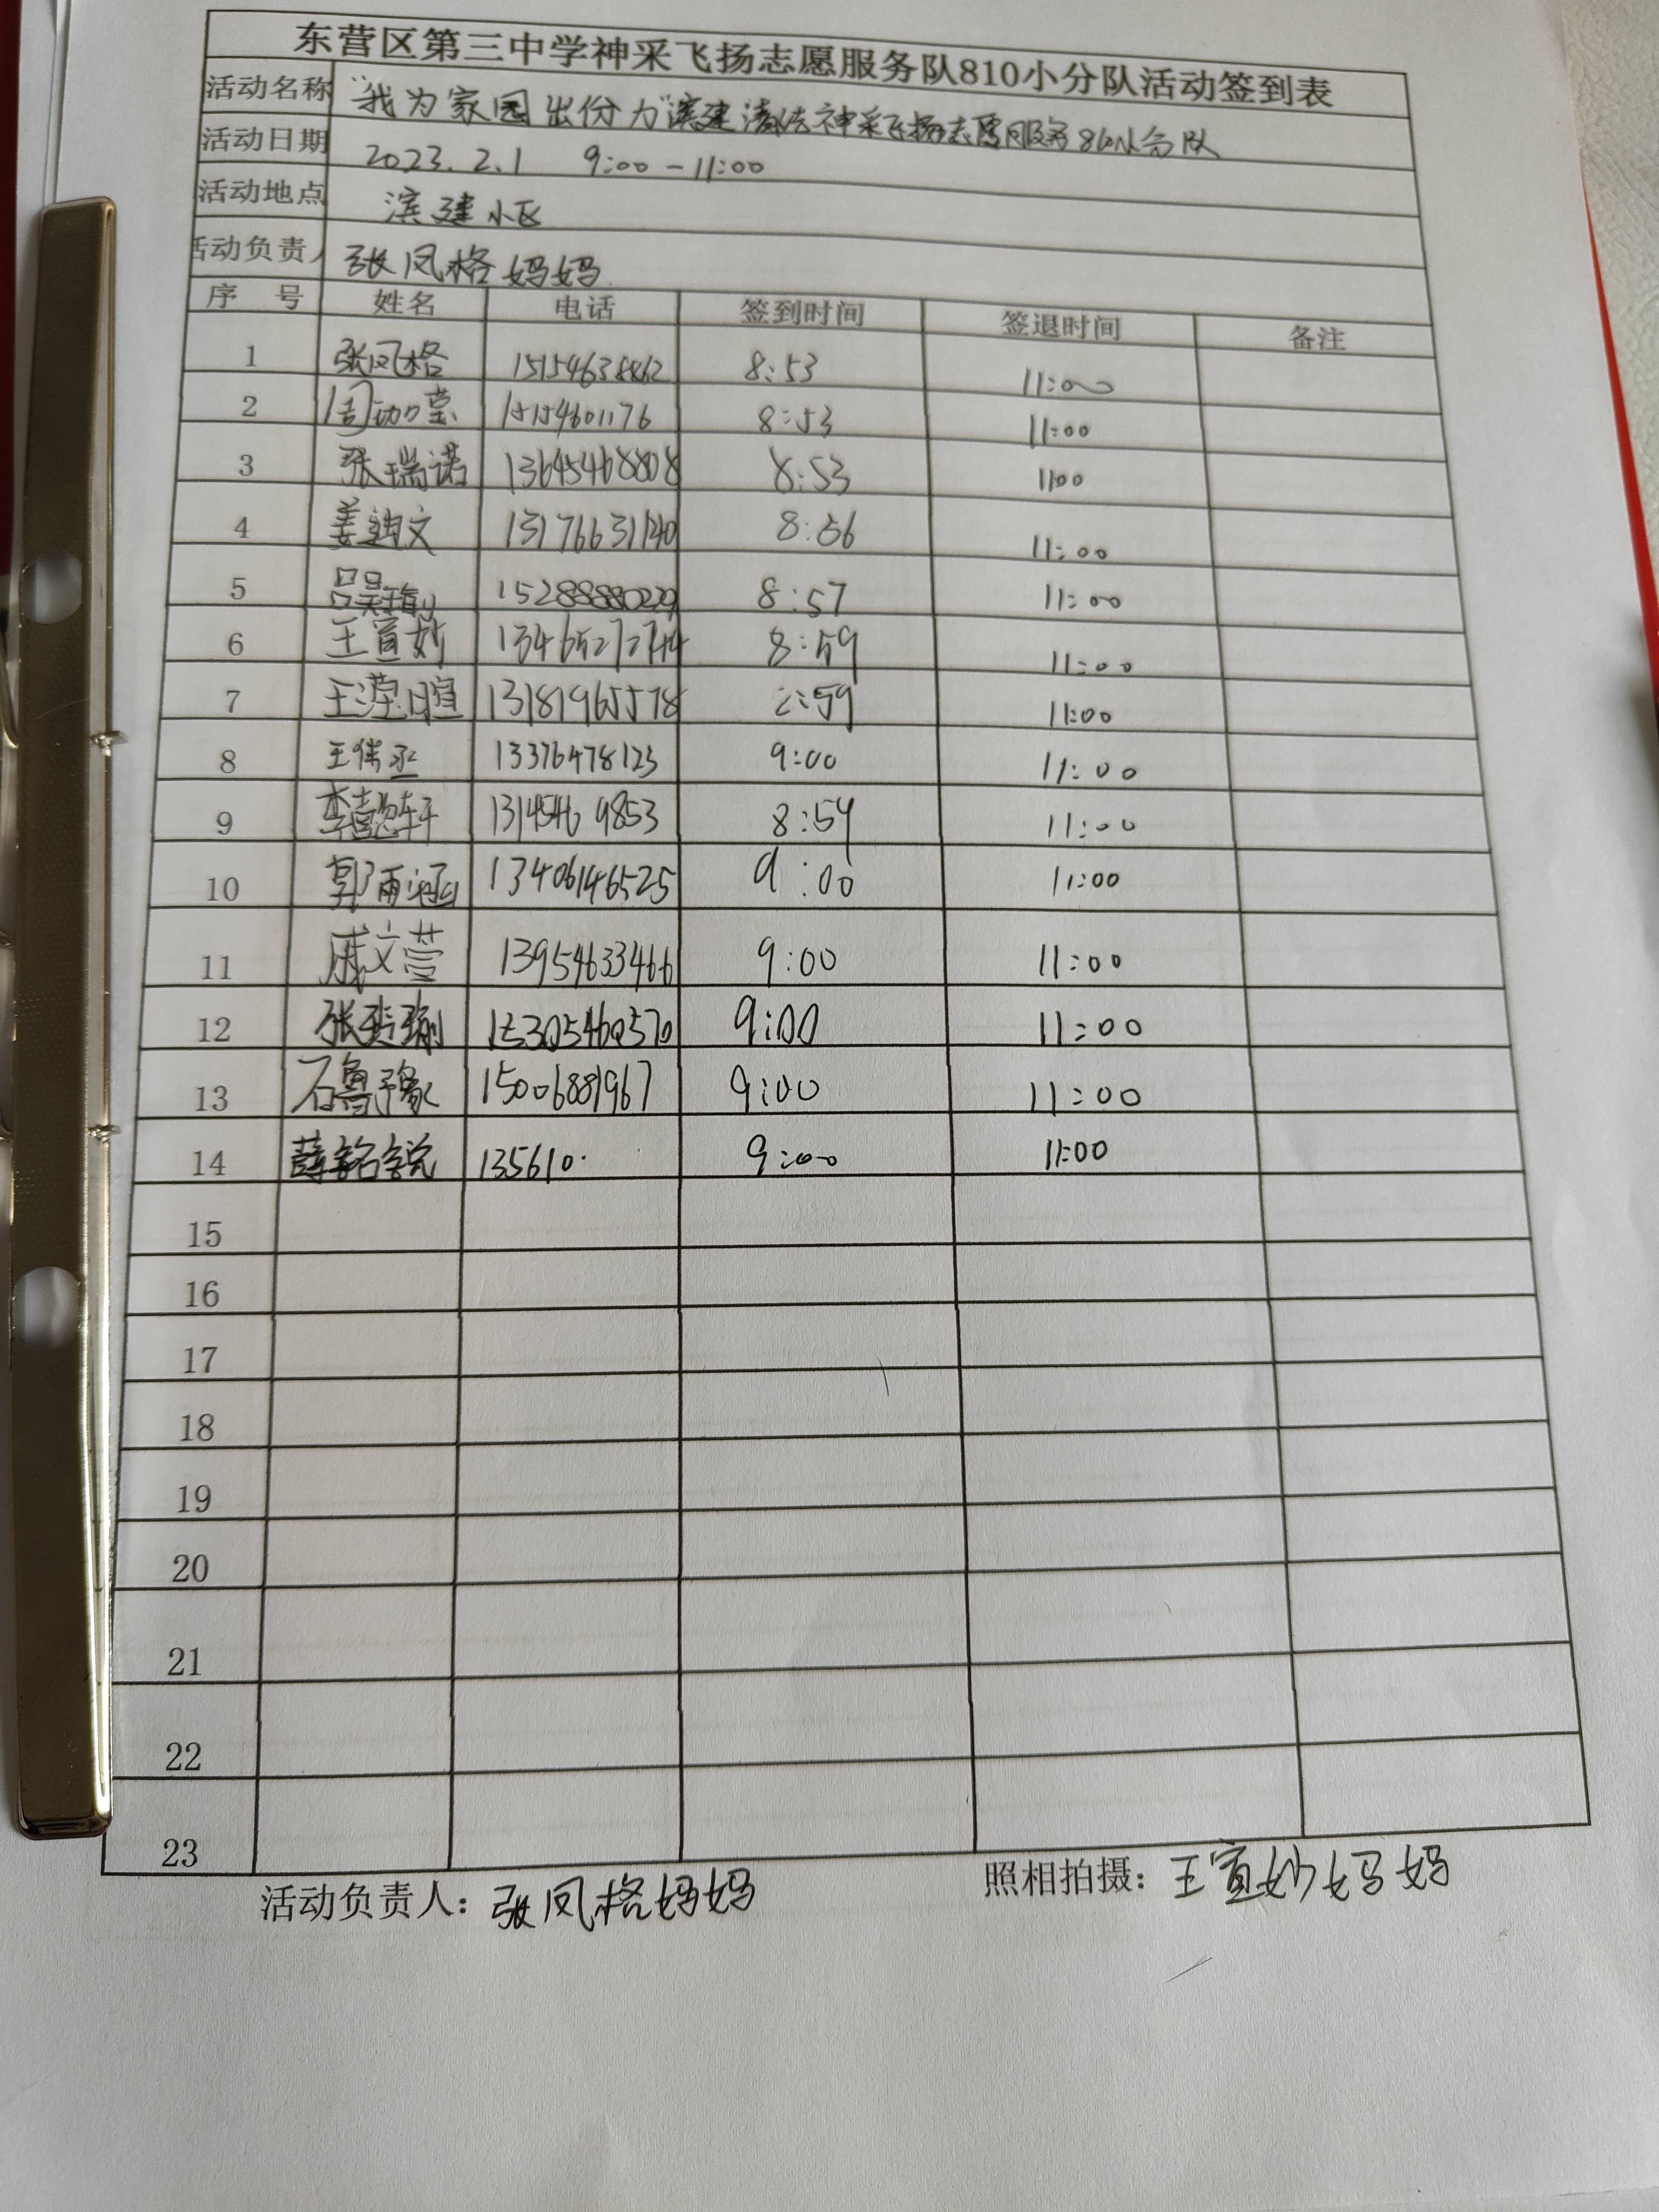 东营区第三中学神采飞扬志愿服务队810小分队活动签到表
活动名称 "我为家园出份力"滨建清洁神采飞扬志愿服务810小分队
活动日期 2023.2.1 9:00-11:00
活动地点 滨建小区
活动负责人 张凤格妈妈
序 号 姓名 电话 签到时间 签退时间 备注
1 张凤格 15154638862 8:53 11:00
2 周加莹 8:53 11:00
3 张瑞诺 13645468808 8:53 11:00
4 姜迪文 13176631140 8:56 11:00
5 15288888029 8:57 11:00
6 王宣妙 13465272744 8:59 11:00
7 王滢暄 13181965578 11:00
8 王伟丞 13376478123 9:00 11:00
9 李懿轩 13145469853 8:59 11:00
10 郭雨涵 13406146525 9:00 11:00
11 戚文萱 13954633466 9:00 11:00
12 9:00 11:00
13 石鲁豫 15006881967 9:00 11:00
14 薛铭锐 135610 9:00 11:00
15
16
17
18
19
20
21
22
23
活动负责人：张凤格妈妈 照相拍摄：王宣妙妈妈